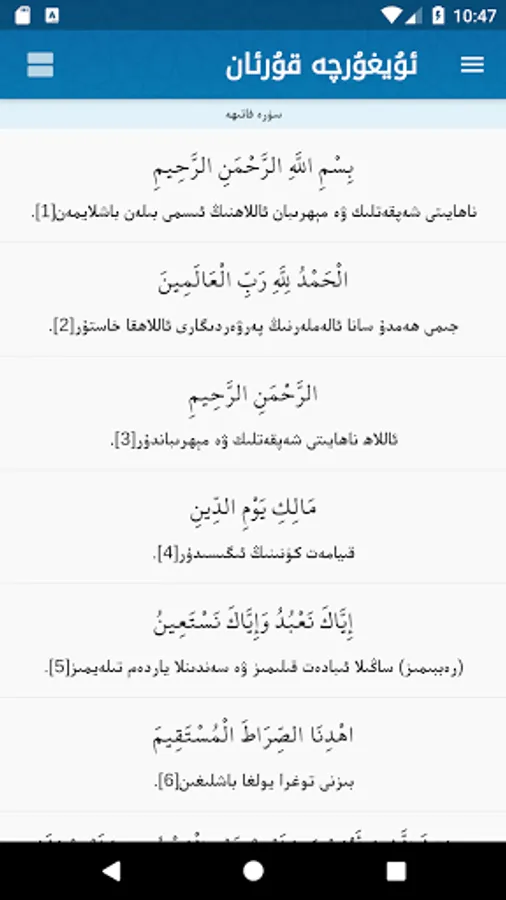 10:47
ئۇيغۇرچە قۇرئان
سۈرە فاتىھە
بِسْمِ اللَّهِ الرَّحْمَنِ الرَّحِيمِ
ناھايىتى شەپقەتلىك ۋە مېھرىبان ئاللاھنىڭ ئىسمى بىلەن باشلايمەن[1].
الْحَمْدُ لِلَّهِ رَبِّ الْعَالَمِينَ
جىمى ھەمدۇ سانا ئالەملەرنىڭ پەرۋەردىگارى ئاللاھقا خاستۇر[2].
الرَّحْمَنِ الرَّحِيمِ
ئاللاھ ناھايىتى شەپقەتلىك ۋە مېھرىباندۇر[3].
مَالِكِ يَوْمِ الدِّينِ
قىيامەت كۈنىنىڭ ئىگىسىدۇر[4].
إِيَّاكَ نَعْبُدُ وَإِيَّاكَ نَسْتَعِينُ
(رەببىمىز) ساڭىلا ئىبادەت قىلىمىز ۋە سەندىنلا ياردەم تىلەيمىز[5].
اهْدِنَا الصِّرَاطَ الْمُسْتَقِيمَ
بىزنى توغرا يولغا باشلىغىن[6].